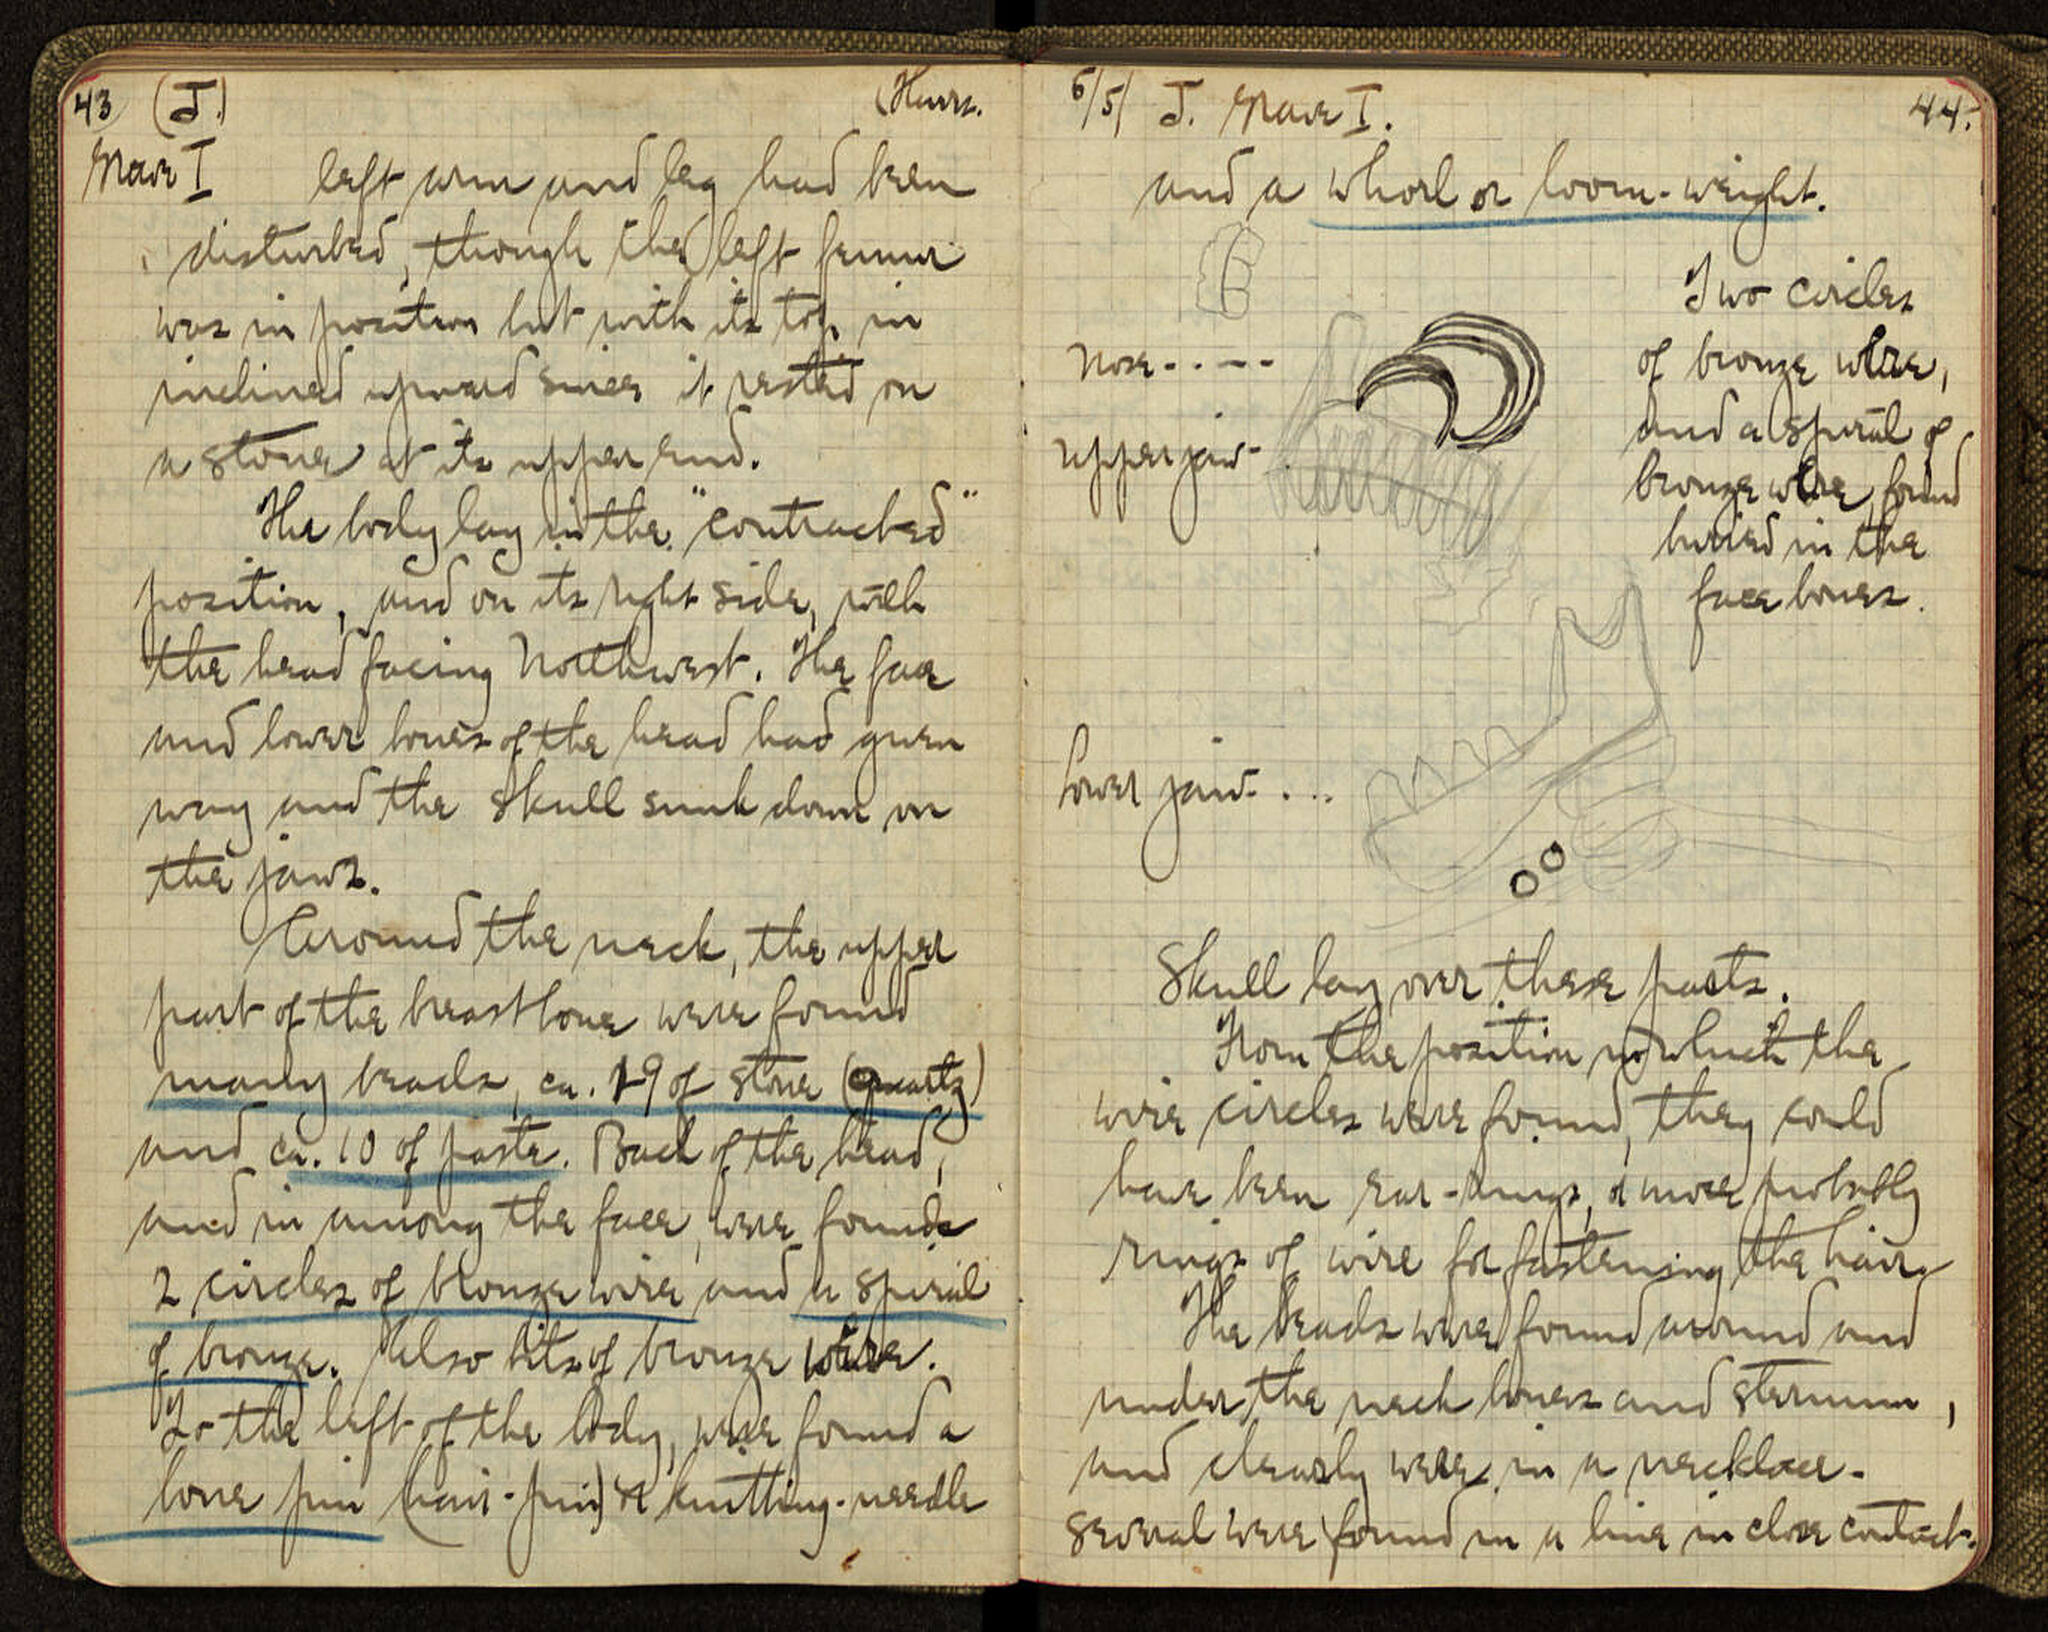 43 (J.) (Thurs.
Grave I left arm and leg had been
disturbed, though the left femur
was in position but with its top in
inclined upward since it rested on
a stone at its upper end.
The body lay in the "contracted"
position, and on its right side, with
the head facing Northwest. The face
and lower bones of the head had given
way and the skull sunk down on
the jaws.
Around the neck, the upper
part of the breastbone were found
many beads, ca. 19 of stone (quartz)
and ca. 10 of paste. Back of the head,
and in among the face, were found
2 circles of bronze wire and a spiral
of bronze. Also bits of bronze wire.
To the left of the body, were found a
bone pin (hair-pin) or knitting-needle
6/5/ J. Grave I. 44.
and a whorl or loom-weight.
Two circles
of bronze wire,
and a spiral of
bronze wire, found
buried in the
face bones.
nose - - - -
upper jaw -
Lower jaw - . . .
Skull lay over these parts.
From the position in which the
wire circles were found, they could
have been ear-rings, or more probably
rings of wire for fastening the hair.
The beads were found around and
under the neck bones and sternum,
and clearly were in a necklace -
several were found in a line in close contact.